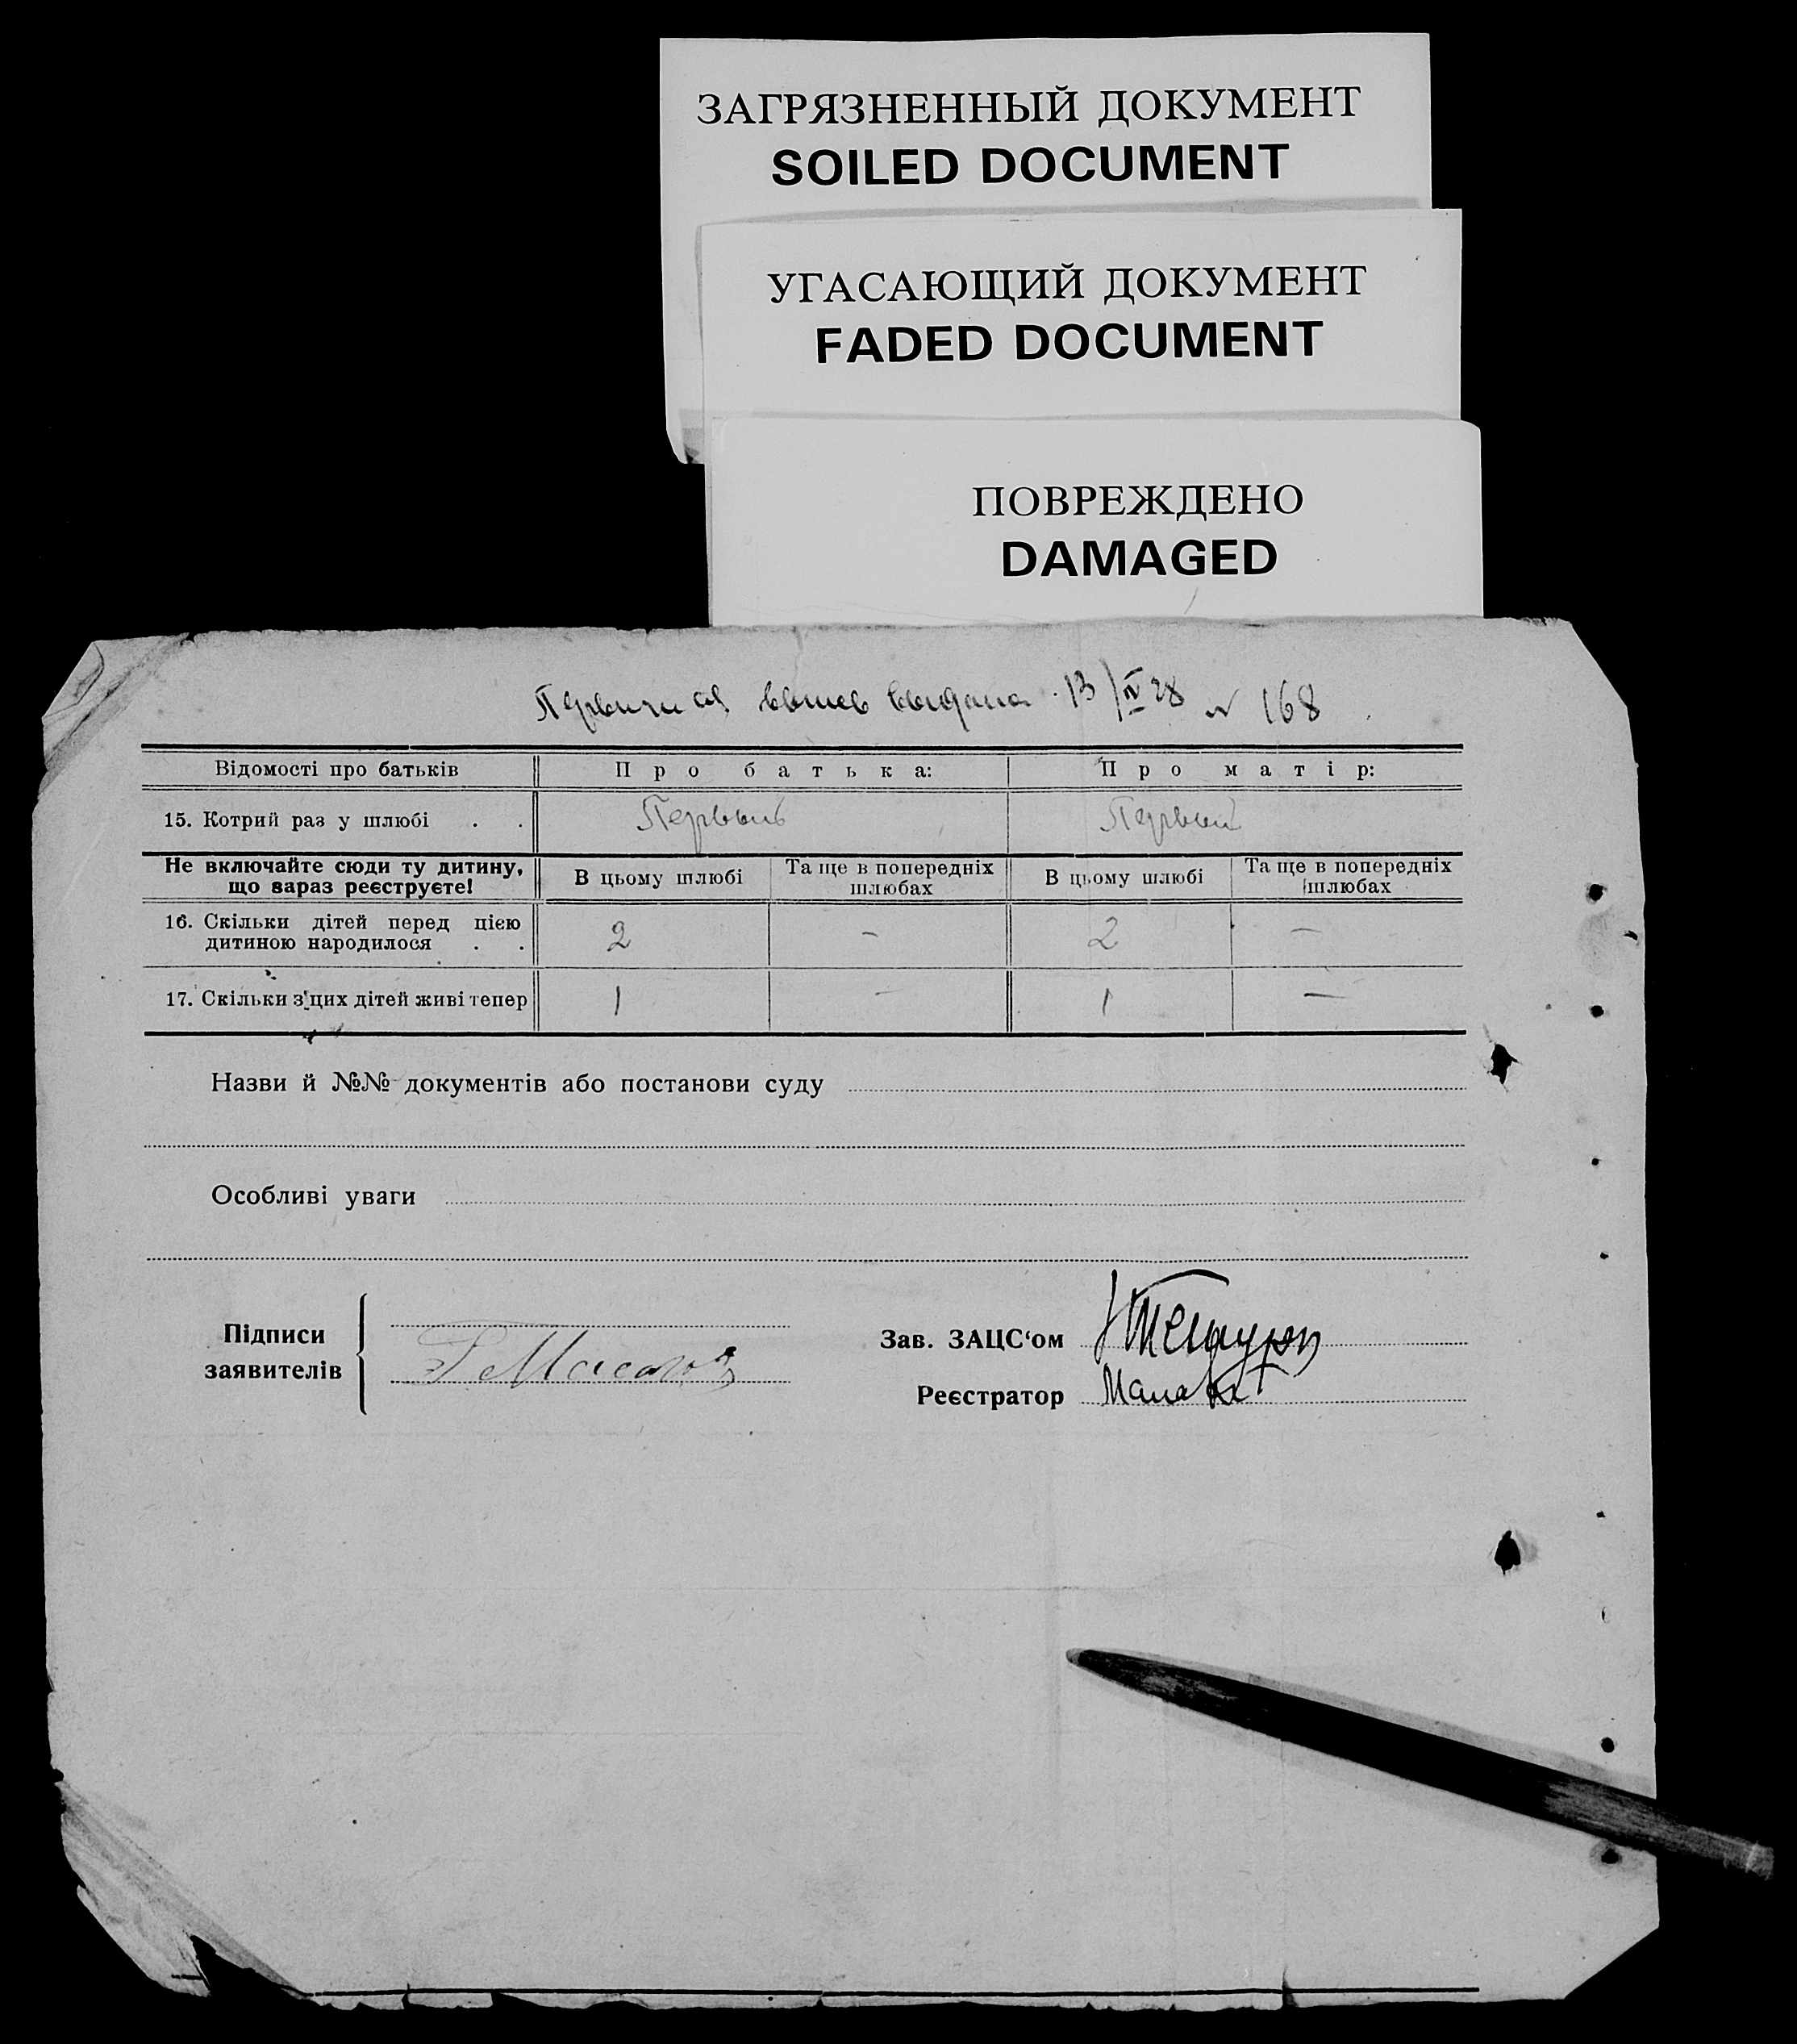 ЗАГРЯЗНЕННЫЙ ДОКУМЕНТ
SOILED DOCUMENT
УГАСАЮЩИЙ ДОКУМЕНТ
FADED DOCUMENT
ПОВРЕЖДЕНО
DAMAGED
Первичная выдана 13/IV 28 N 168
Відомості про батьків Про батька: Про матір:
15. Котрий раз у шлюбі . . Первый Первый
Не включайте сюди ту дитину, що зараз реєструєте! В цьому шлюбі Та ще в попередніх шлюбах В цьому шлюбі Та ще в попередніх шлюбах
16. Скільки дітей перед цією
дитиною народилося . . 2 — 2 —
17. Скільки з цих дітей живі тепер 1 — 1 —
Назви й №№ документів або постанови суду
Особливі уваги
Підписи
заявителів
Зав. ЗАЦС‘ом
Реєстратор